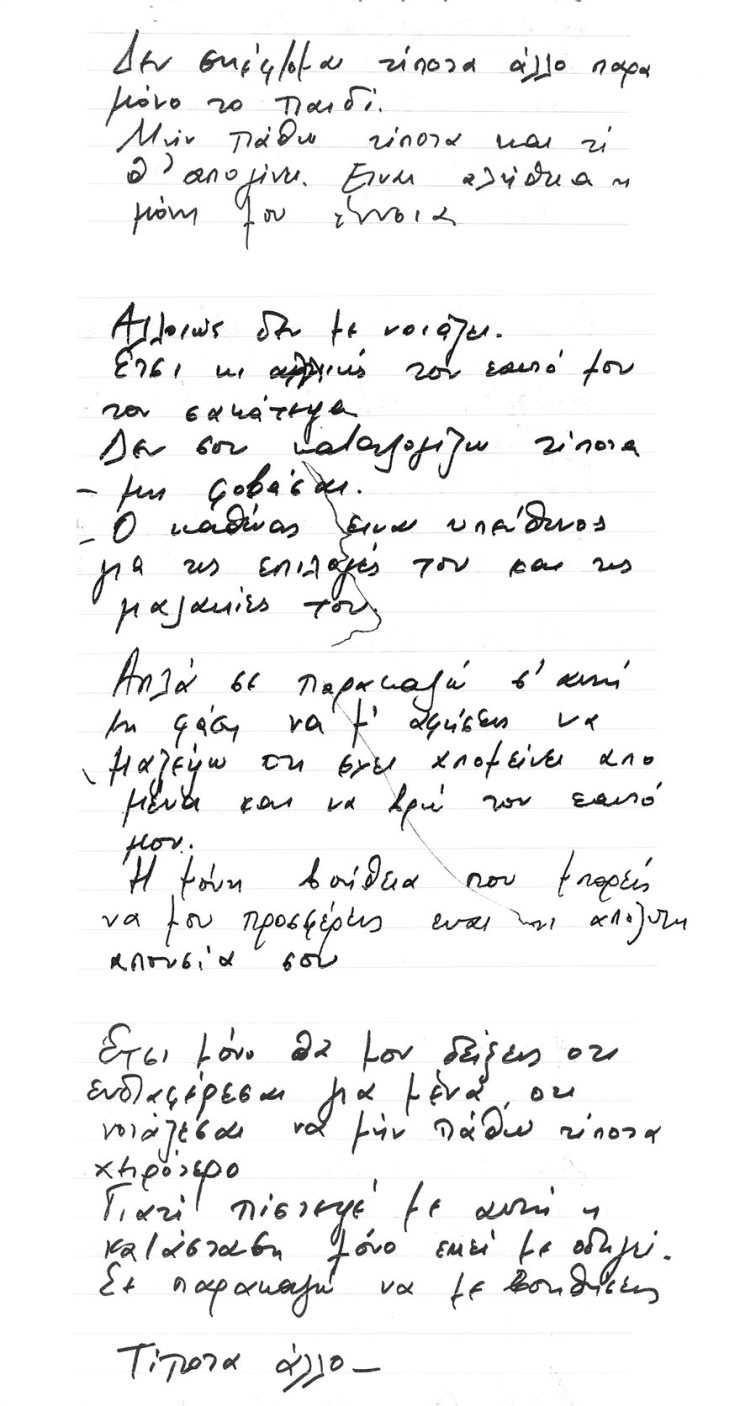 Δεν σκέφτομαι τίποτα άλλο παρα
μόνο το παιδί.
Μην πάθω τίποτα και τί
θ' απογίνει. Ειναι αλήθεια η
μόνη μου έννοια
Αλλοιώς δεν με νοιάζει.
Ετσι κι τον εαυτό μου
τον σακάτεψα
Δεν σου καταλογίζω τίποτα
- μη φοβάσαι.
- Ο καθένας ειναι υπεύθυνος
για τις επιλογές του και τις
μαλακίες του.
Απλά σε παρακαλώ σ' αυτή
τη φάση να μ' αφήσεις να
μαζέψω οτι εχει απομείνει απο
μένα και να βρώ τον εαυτό
μου.
Η μόνη βοήθεια που μπορείς
να μου προσφέρεις ειναι η απόλυτη
απουσία σου
Ετσι μόνο θα μου δείξεις οτι
ενδιαφέρεσαι για μένα, οτι
νοιάζεσαι να μήν πάθω τίποτα
χειρότερο
Γιατί πίστεψέ με αυτή η
κατάσταση μόνο εκεί με οδηγεί.
Σε παρακαλώ να με βοηθήσεις
Τίποτα άλλο -